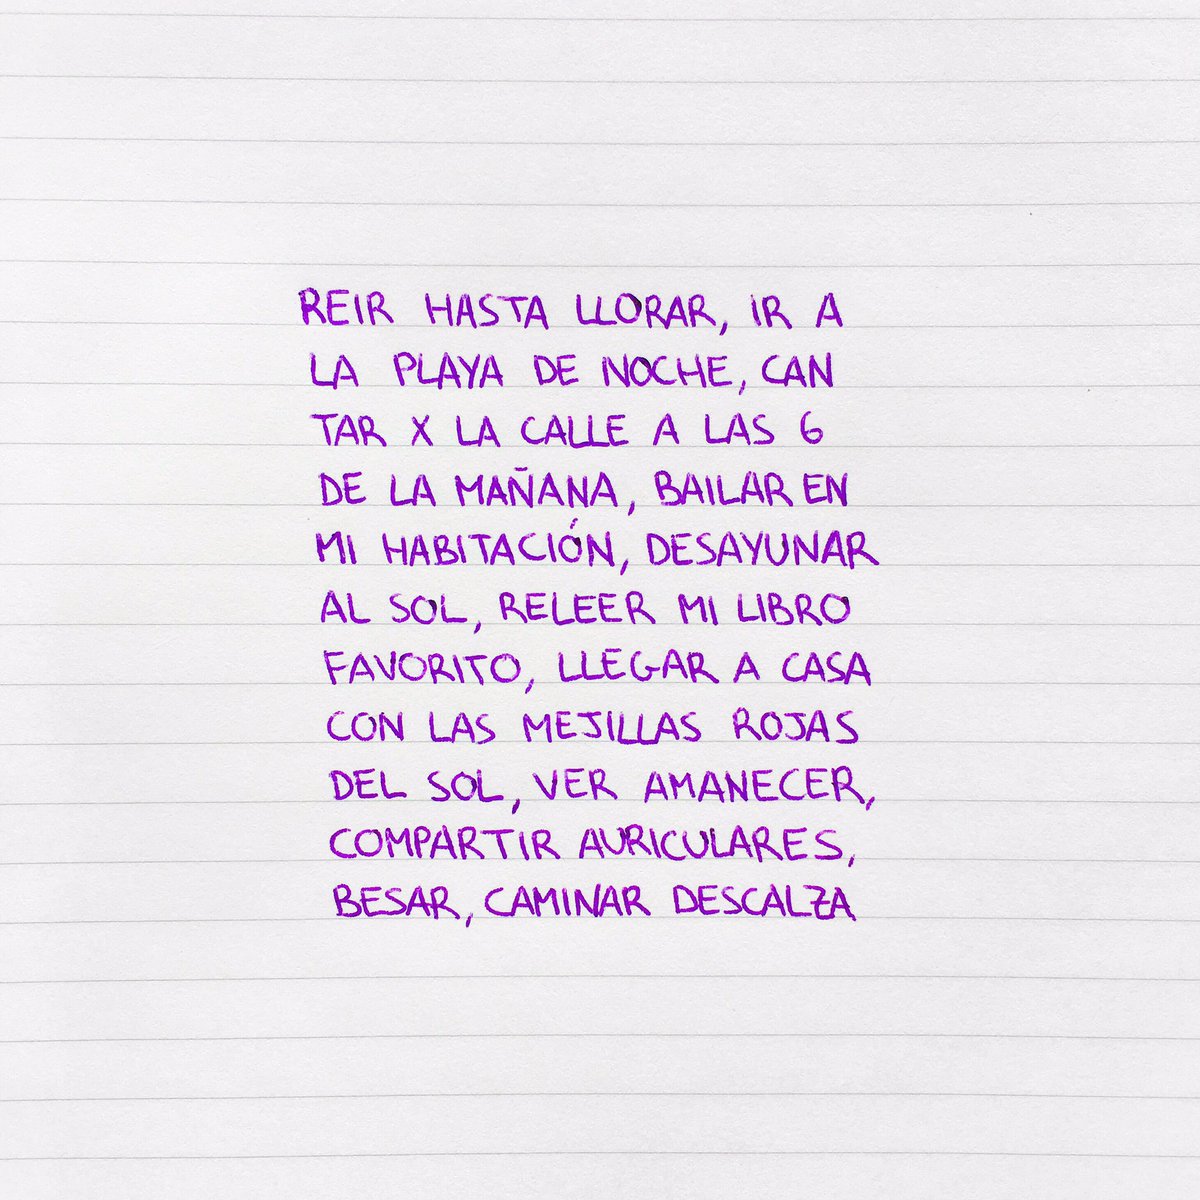 REIR HASTA LLORAR, IR A
LA PLAYA DE NOCHE, CAN
TAR X LA CALLE A LAS 6
DE LA MAÑANA, BAILAR EN
MI HABITACIÓN, DESAYUNAR
AL SOL, RELEER MI LIBRO
FAVORITO, LLEGAR A CASA
CON LAS MEJILLAS ROJAS
DEL SOL, VER AMANECER,
COMPARTIR AURICULARES,
BESAR, CAMINAR DESCALZA